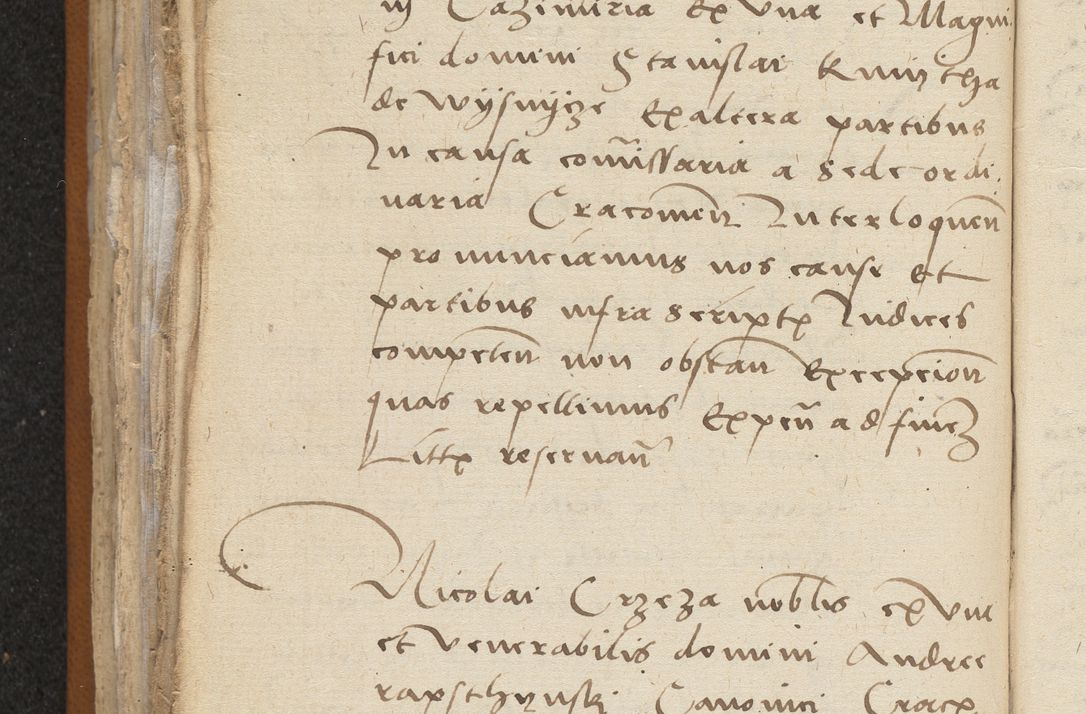 in Cazimiria Ex vna et Magni
fici domini Stanislai Kmijtha
de Wÿsnÿcze Ex altera partibus
In causa com̃issaria a Sede ordi
naria Cracouien̄ Interloquen̄
pronunciamus nos cause Et
partibus infrascriptꝝ Iudices
competen̄ non obstan̄ Excepcion̄
quas repellimus Expen̄ ad finē
Littꝝ reseruan̄
Nicolai Czeza nobīlis ex vna
et venerabilis domini Andree
rapsthynski Canonici Cracꝝ